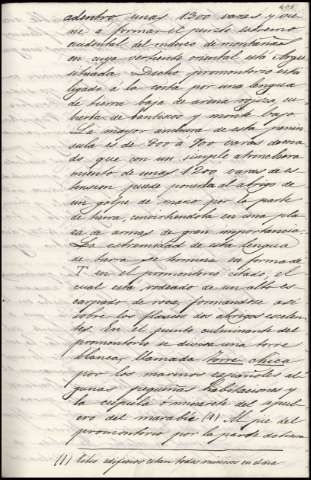 adentro unas 1300 varas y vie-
ne a formar el punto estremo
occidental del indice de montañas
en cuya vertiente oriental está Argel
situada. Dicho promontorio está
ligado á la costa por una lengua
de tierra baja de arena rojiza cu-
bierta de lentiscos y monte bajo.
La mayor anchura de esta penin
sula es de 800 á 900 varas de modo
do que con un simple atrinchera
miento de unas 1200 varas de es
tension puede ponerla al abrigo de
un golpe de mano por la parte
de tierra, convirtiendola en una pla
za de armas de gran importancia.
La estremidad de esta lengua
de tierra se termina en forma de
T en el promontorio citado, el
cual está rodeado de un alto es
carpado de roca, formandose así
sobre los flancos dos abrigos escelen
tes. En el punto culminante del
promontorio se divisa una torre
blanca, llamada Torre chica
por los marinos españoles al
gunas pequeñas habitaciones y
la cúpula ó minarete del sepul
cro del marabú (1) Al pie del
promontorio por la parte
(1) Estos edificios estan todos ruinosos en el dia